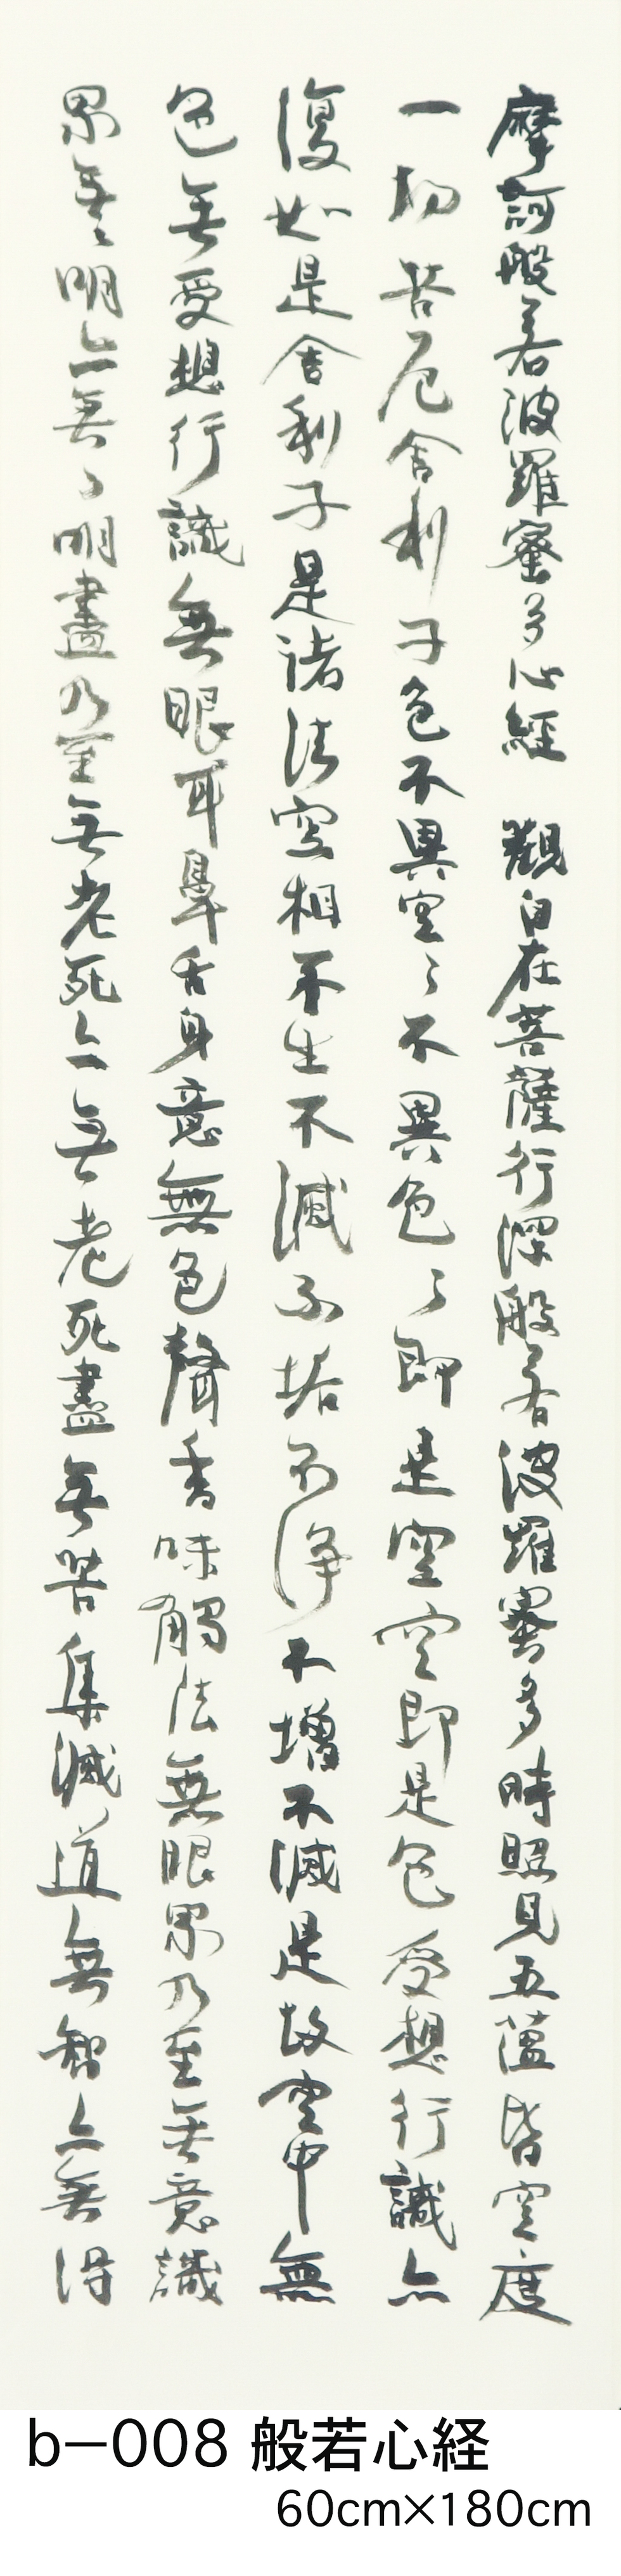 摩訶般若波羅蜜多心經　觀自在菩薩行深般若波羅蜜多時照見五蘊皆空度
一切苦厄舍利子色不異空々不異色々即是空空即是色受想行識亦
復如是舍利子是諸法空相不生不滅不垢不淨不增不減是故空中無
色無受想行識無眼耳鼻舌身意無色聲香味觸法無眼界乃至無意識
界無無明亦無々明盡乃至無老死亦無老死盡無苦集滅道無智亦無得
b−008 般若心経
60cm×180cm